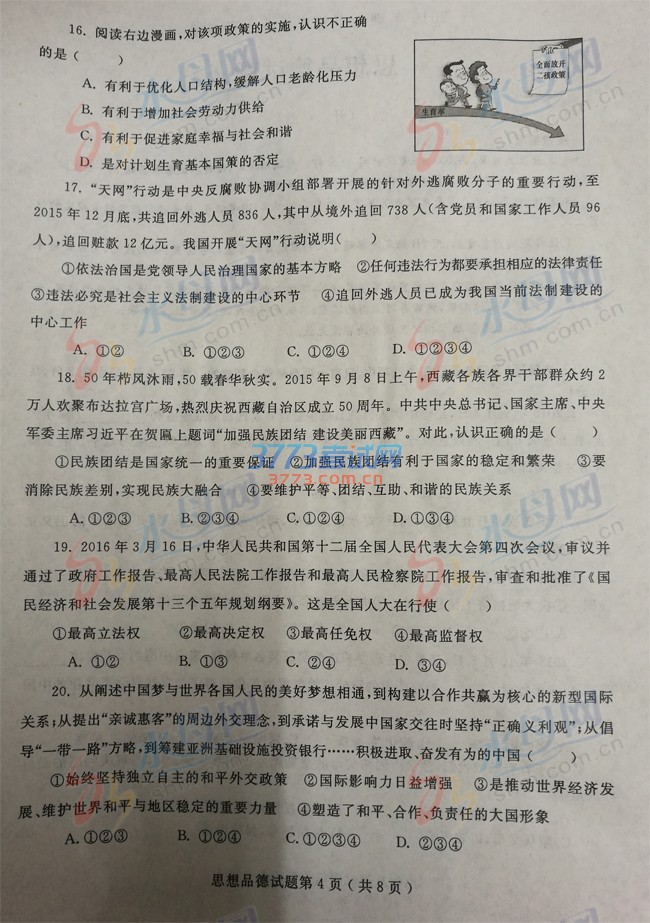 16. 阅读右边漫画,对该项政策的实施,认识不正确
的是(　　)
全面放开
二孩政策
生育率
A. 有利于优化人口结构,缓解人口老龄化压力
B. 有利于增加社会劳动力供给
C. 有利于促进家庭幸福与社会和谐
D. 是对计划生育基本国策的否定
17. “天网”行动是中央反腐败协调小组部署开展的针对外逃腐败分子的重要行动,至
2015 年 12 月底,共追回外逃人员 836 人,其中从境外追回 738 人(含党员和国家工作人员 96
人),追回赃款 12 亿元。我国开展“天网”行动说明(　　)
①依法治国是党领导人民治理国家的基本方略 ②任何违法行为都要承担相应的法律责任
③违法必究是社会主义法制建设的中心环节 ④追回外逃人员已成为我国当前法制建设的
中心工作
A. ①② B. ①②③ C. ①②④ D. ①②③④
18. 50 年栉风沐雨,50 载春华秋实。2015 年 9 月 8 日上午,西藏各族各界干部群众约 2
万人欢聚布达拉宫广场,热烈庆祝西藏自治区成立 50 周年。中共中央总书记、国家主席、中央
军委主席习近平在贺匾上题词“加强民族团结 建设美丽西藏”。对此,认识正确的是(　　)
①民族团结是国家统一的重要保证 ②加强民族团结有利于国家的稳定和繁荣 ③要
消除民族差别,实现民族大融合 ④要维护平等、团结、互助、和谐的民族关系
A. ①②③ B. ②③④ C. ①②④ D. ①③④
3773考试网
3773.com.cn
19. 2016 年 3 月 16 日,中华人民共和国第十二届全国人民代表大会第四次会议,审议并
通过了政府工作报告、最高人民法院工作报告和最高人民检察院工作报告,审查和批准了《国
民经济和社会发展第十三个五年规划纲要》。这是全国人大在行使(　　)
①最高立法权 ②最高决定权 ③最高任免权 ④最高监督权
A. ①② B. ①③ C. ②④ D. ③④
20. 从阐述中国梦与世界各国人民的美好梦想相通,到构建以合作共赢为核心的新型国际
关系;从提出“亲诚惠容”的周边外交理念,到承诺与发展中国家交往时坚持“正确义利观”;从倡
导“一带一路”方略,到筹建亚洲基础设施投资银行……积极进取、奋发有为的中国(　　)
①始终坚持独立自主的和平外交政策 ②国际影响力日益增强 ③是推动世界经济发
展、维护世界和平与地区稳定的重要力量 ④塑造了和平、合作、负责任的大国形象
A. ①②③ B. ①②④ C. ①③④ D. ②③④
思想品德试题第 4 页(共 8 页)
水母网
shm.com.cn